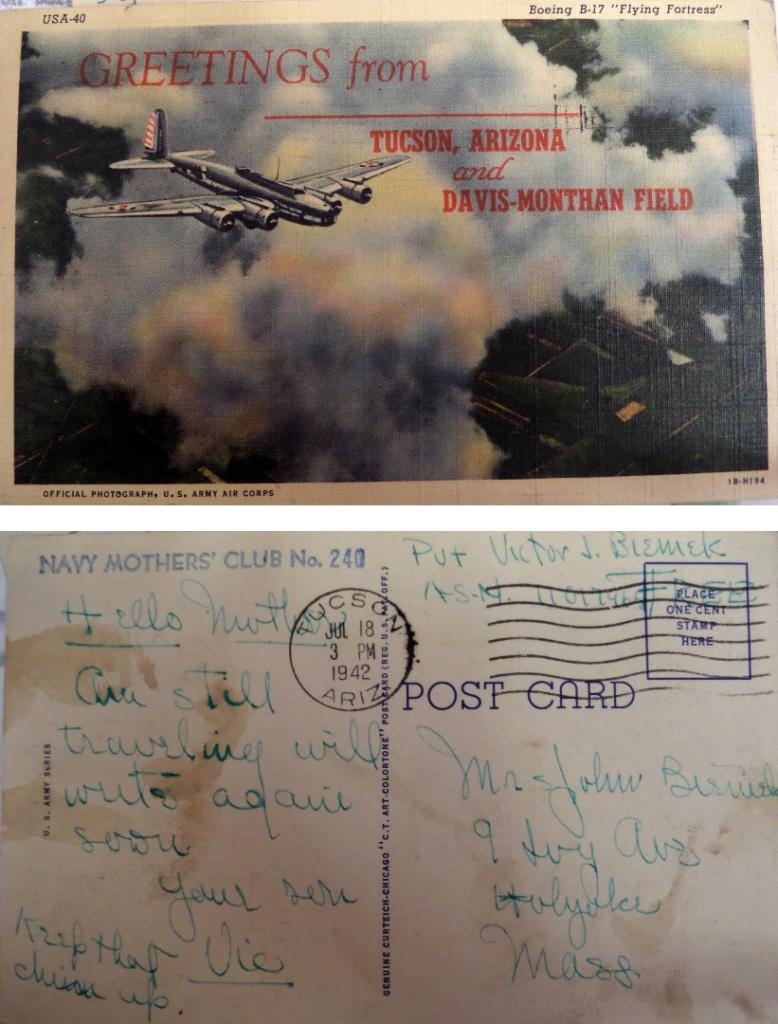 USA-40
Boeing B-17 "Flying Fortress"
GREETINGS from
TUCSON, ARIZONA
and
DAVIS-MONTHAN FIELD
OFFICIAL PHOTOGRAPH, U. S. ARMY AIR CORPS
1B-H194
NAVY MOTHERS' CLUB No. 240
Hello Mother
Am still
traveling will
write again
soon
your son
Vic
Keep that
chin up.
U. S. ARMY SERIES
TUCSON
JUL 18
3 PM
1942
ARIZ
GENUINE CURTEICH-CHICAGO "C.T. ART-COLORTONE" POST CARD (REG. U.S. PAT. OFF.)
Pvt Victor J. Biemek
A.S.N.
FREE
PLACE
ONE CENT
STAMP
HERE
POST CARD
Mrs John Biemek
9 Ivy Ave
Holyoke
Mass.